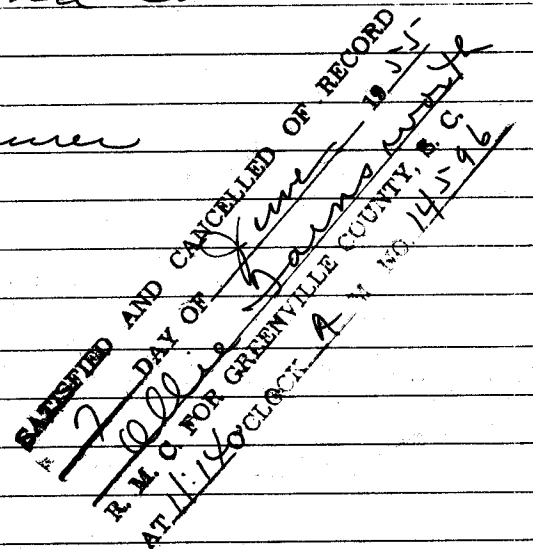 SATISFIED AND CANCELLED OF RECORD
7 DAY OF June 1955
Ollie Farnsworth
R. M. C. FOR GREENVILLE COUNTY, S. C.
AT 11:14 O'CLOCK A M NO. 14596